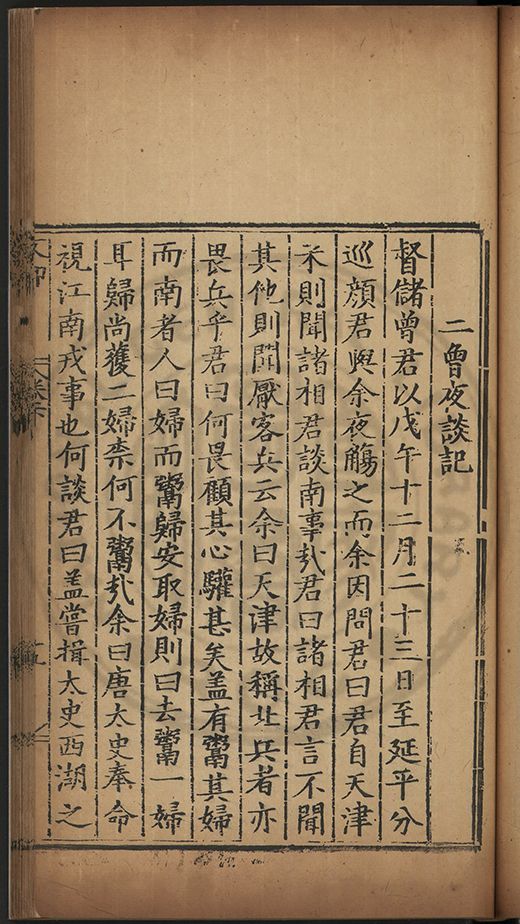 二曾夜談記
督儲曾君以戊午十二月二十三日至延平分
巡顔君與余夜觴之而余因問君曰君自天津
来則聞諸相君談南事㢤君曰諸相君言不聞
其他則聞厭客兵云余曰天津故稱北兵者亦
畏兵乎君曰何畏顧其心驩甚矣盖有鬻其婦
而南者人曰婦而鬻歸安取婦則曰去鬻一婦
耳歸尚獲二婦柰何不鬻㢤余曰唐太史奉命
視江南戎事也何談君曰盖嘗揖太史西湖之